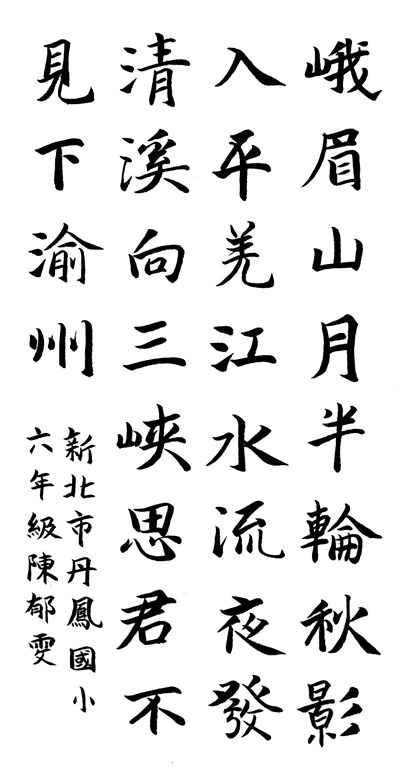 峨眉山月半輪秋影
入平羌江水流夜發
清溪向三峽思君不
見下渝州
新北市丹鳳國小
六年級陳郁雯